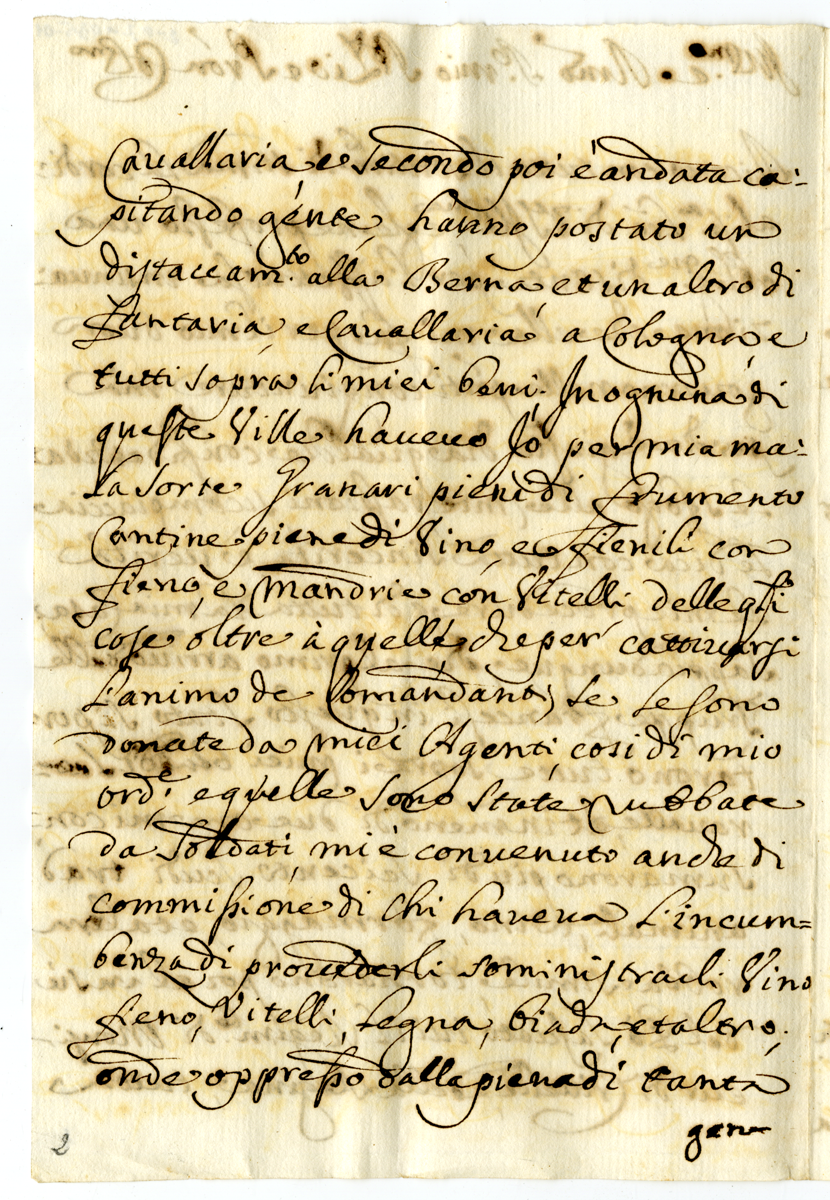 Cavallaria e secondo poi è andata ca:
pitando génte, hanno postato un
distaccam.to alla Berna, et un altro di
fantaria, e Cavallaria a Cologna, e
tutti sopra li miei beni. In ognuna di
queste Ville havevo Jó per mia ma:
la sorte Granari pieni di frumento
Cantine piene di Vino, e fienili con
fieno, e mandrie con Vitelli delle q.li
cose oltre à quelle che per cattivarsi
l'animo de Comandanti, se le sono
donate da miei Agenti, cosi di mio
ord.e, e quelle sono state rubbate
da Soldati, mi è convenuto anche di
commissione di chi haveva l'incum=
benza di provederli sominiſtrarli Vino
fieno, Vitelli, legna, biada, et altro.
onde oppresso dalla piena di tanta
gen
2